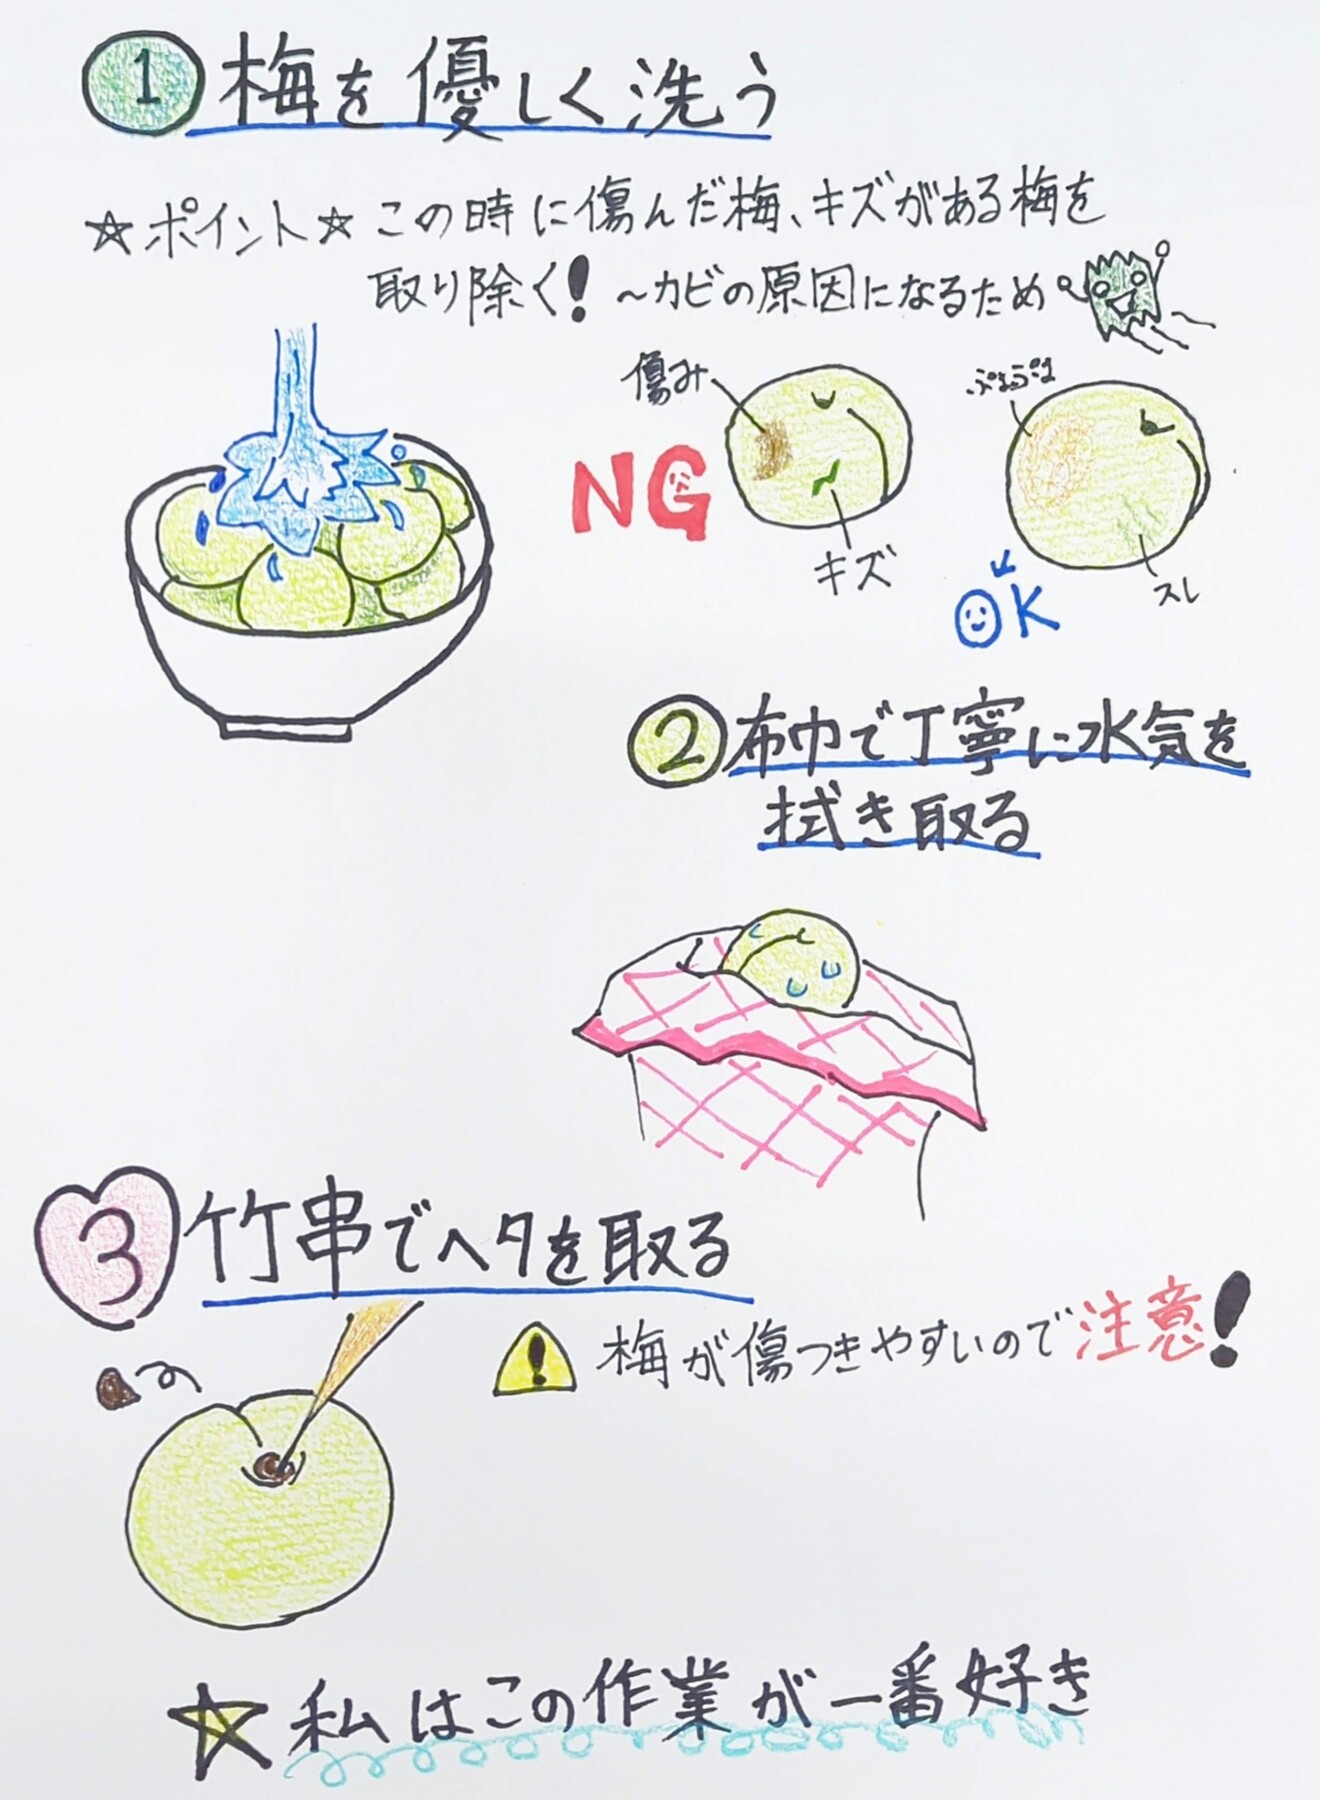 1 梅を優しく洗う
☆ポイント☆この時に傷んだ梅、キズがある梅を
取り除く！～カビの原因になるため
傷み
ぷよぷよ
NG
キズ
スレ
OK
2 布巾で丁寧に水気を
拭き取る
3 竹串でヘタを取る
! 梅が傷つきやすいので注意！
☆私はこの作業が一番好き